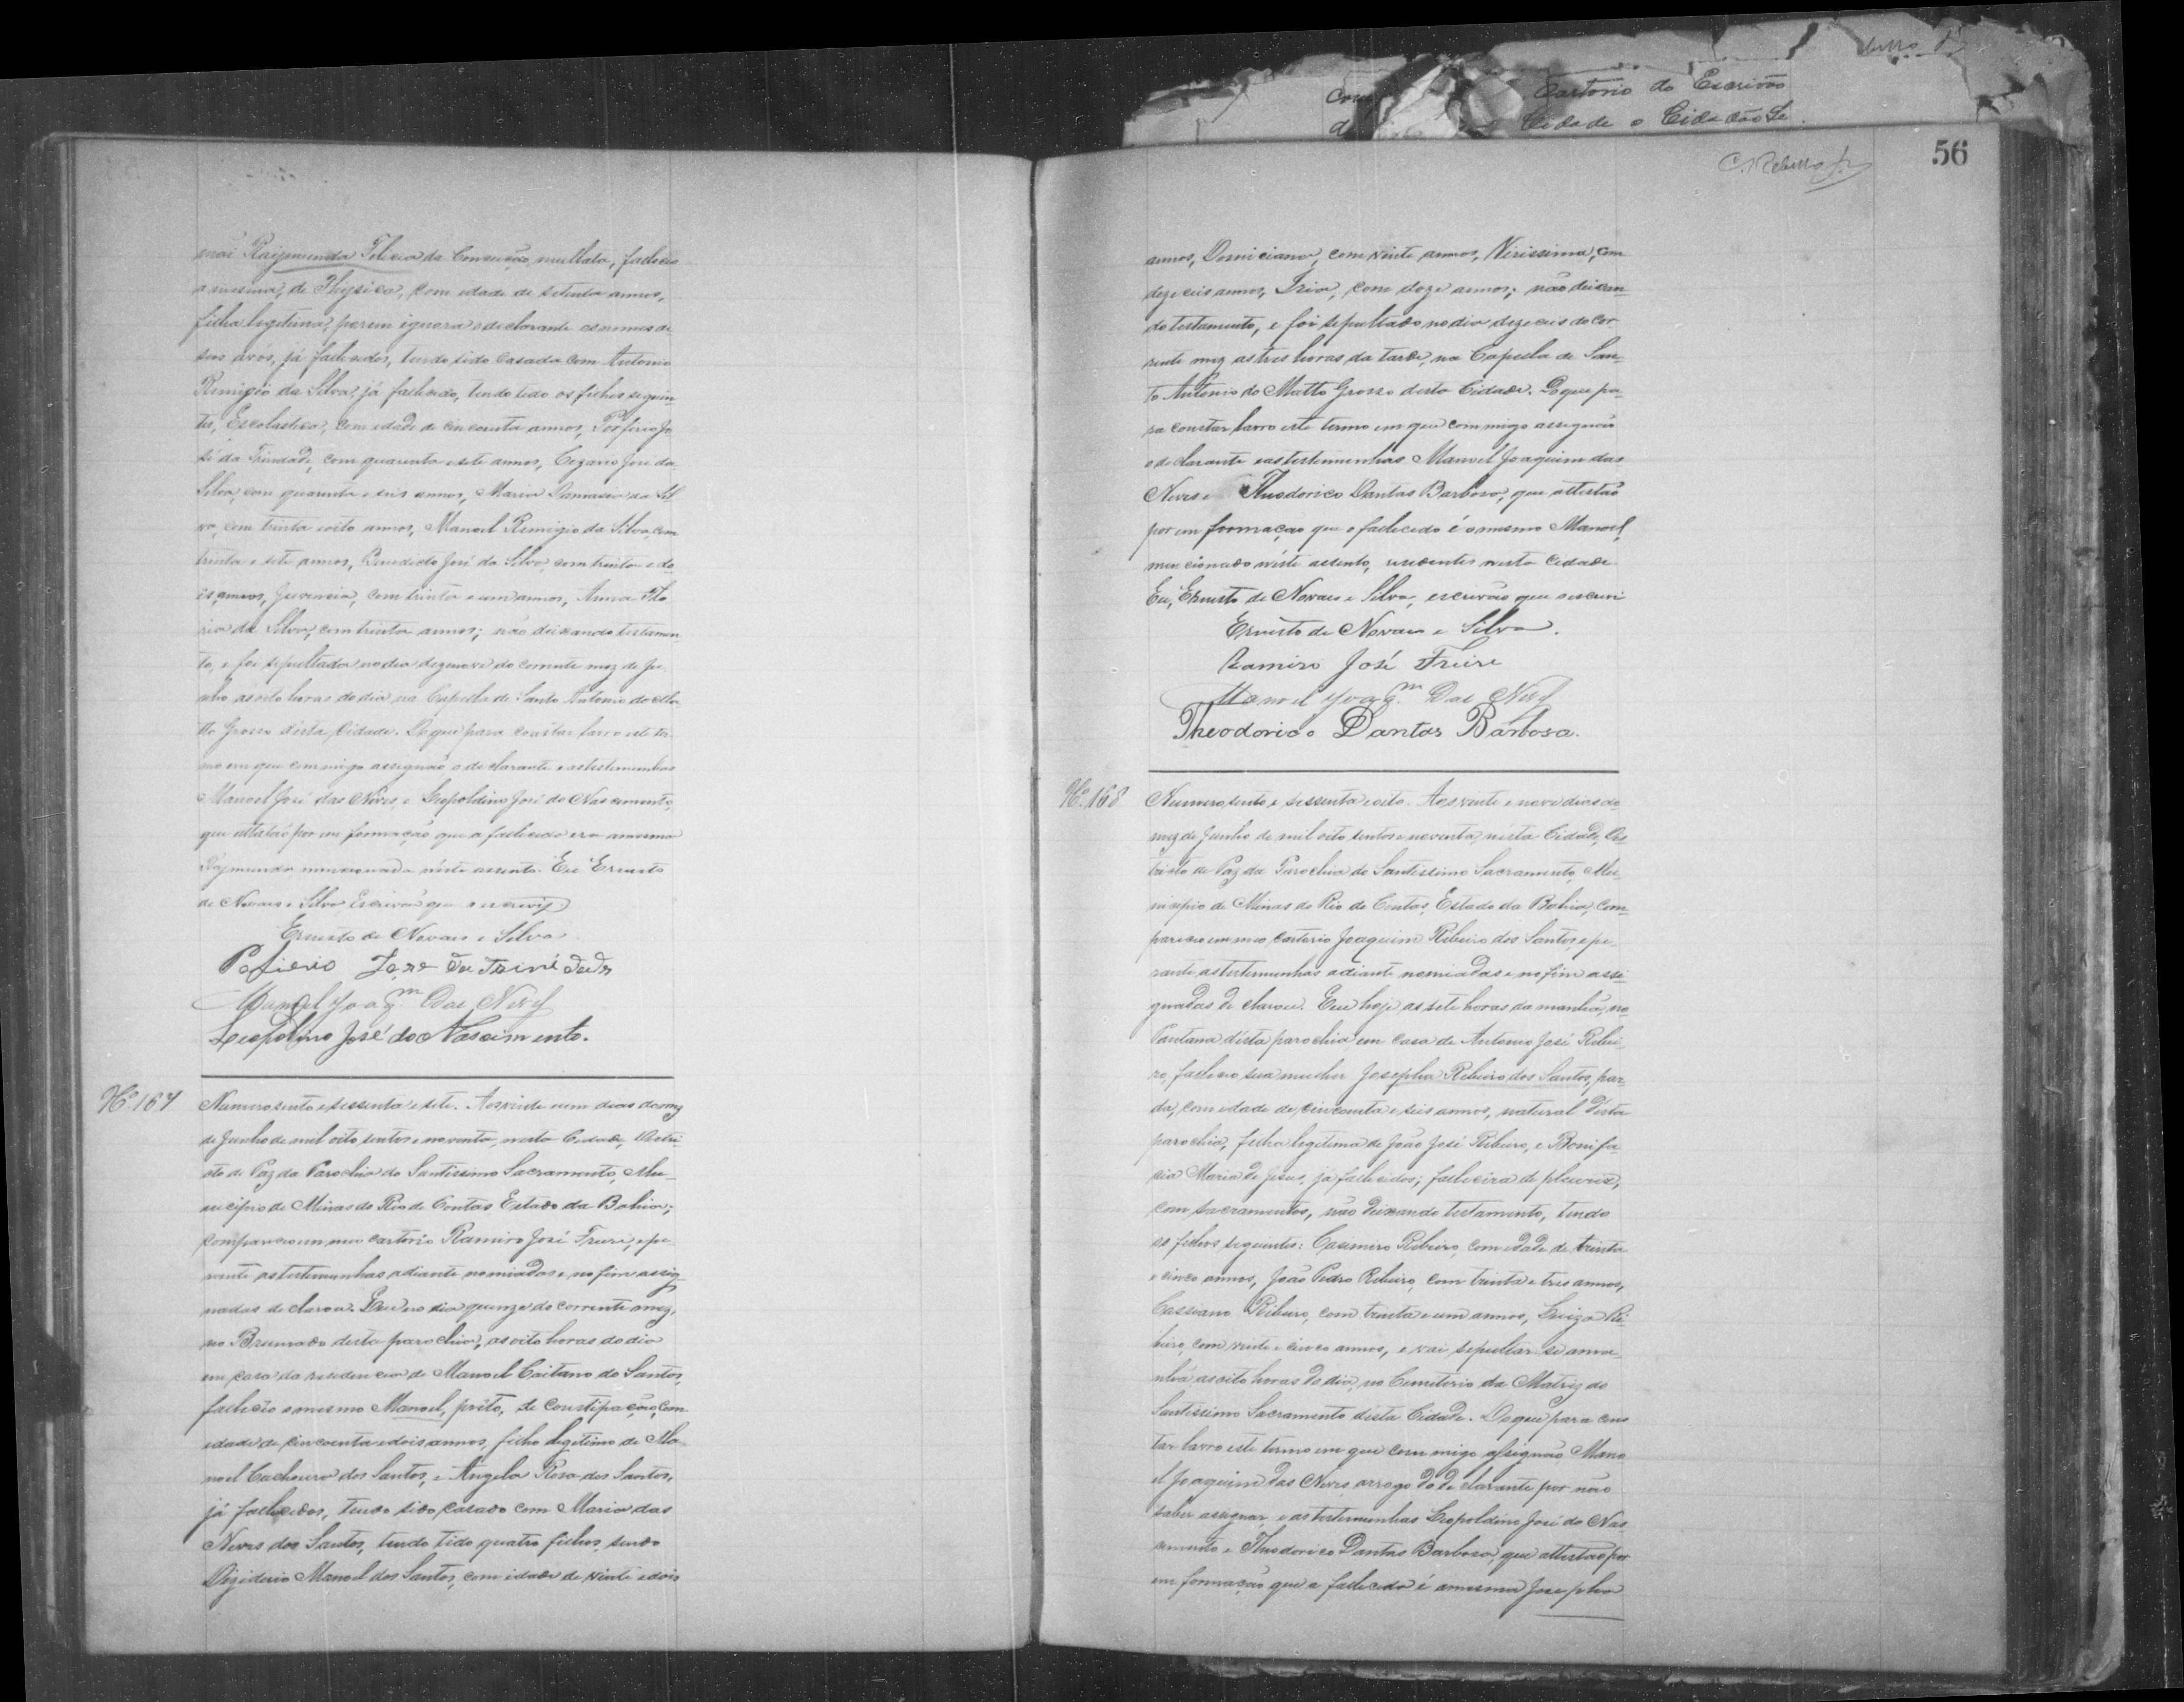 Cartorio do Escrivão
Cidade o Cidadão
mai Raijmunda Felicia da Conceição, mullata, falleceo
a mesma, de Thysica, com idade de setenta annos,
filha legitima, porem ignora o declarante os nomes de
seos avós, já fallecidos, tendo sido casada com Antonio
Remigio da Silva, já fallecido, tendo tido os filhos seguin-
tes, Escolastica, com idade de cincoenta annos, Porferio Jo
sé da Trindade, com quarenta e sete annos, Cezario José da
Silva, com quarenta e seis annos, Maria Damasia da Sil
va, com trinta e oito annos, Manoel Remigio da Silva, com
trinta e sete annos, Benedicto José da Silva, com trinta e do
is annos, Juvencia, com trinta e um annos, Anna Flo
ria da Silva, com trinta annos; não deixando testamen
to, e foi sepultada no dia dezenove do corrente mez de Ju
nho as oito horas do dia na Capella de Santo Antonio do Ma
tto Grosso desta Cidade. Do que para constar lavro este ter
mo em que commigo assignão o declarante e as testemunhas
Manoel José das Neves, e Leopoldino José do Nascimento,
que attestão por em formação que a fallecida era a mesma
Raymunda mencionada néste assento. Eu Ernesto
de Novaes e Silva Escrivão que o escrevij
Ernesto de Novaes e Silva
Pofierio Joze da Trinidade
Manoel Joaqm. Das Neves
Leopoldino José do Nascimento.
No. 167 Numero sento e sessenta e sete. Aos vinte e um dias do mez
de Junho de mil oito sentos e noventa, nesta Cidade, Destri
cto de Paz da Parochia do Santissimo Sacramento, Mu-
nicipio de Minas do Rio de Contas Estado da Bahia;
compareceo em meo cartorio Ramiro José Freire, e pe
rante as testemunhas adiante nomiadas e no fim assig
nadas declarou. Que no dia quinze do corrente mez,
no Brumado desta parochia, as oito horas do dia
em casa da residencia de Manoel Caitano do Santos,
falleceo o mesmo Manoel, prêto, de Constipação, com
idade de cincoenta e dois annos, filho legitimo de Ma
noel Cachoeira dos Santos, e Angela Rosa dos Santos,
já fallecidos, tendo sido casado com Maria das
Neves dos Santos, tendo tido quatro filhos, sendo
Digiderio Manoel dos Santos, com idade de vinte e dois
56
annos, Domiciana, com vinte annos, Virissima, com
dezeceis annos, Iria, com doze annos; não deixan-
do testamento, e foi sepultado no dia dezeceis do cor
rente mez as tres horas da tarde, na Capella de San-
to Antonio do Matto Grosso desta Cidade. Do que pa-
ra constar lavro este termo em que commigo assignão
o declarante e as testemunhas Manoel Joaquim das
Neves e Theodorico Dantas Barbosa, que attestão
por em formação que o fallecido é o mesmo Manoel,
mencionado néste assento, residentes nesta Cidade.
Eu, Ernesto de Novaes e Silva, escrivão que o escrevi
Ernesto de Novaes e Silva.
Ramiro José Freire
Manoel Joaqm. Das Neves
Theodorico Dantas Barbosa.
No. 168 Numero sento e sessenta e oito. Aos vinte e nove dias do
mez de Junho de mil oito sentos e noventa, nesta Cidade, Des
tricto de Paz da Parochia do Santissimo Sacramento, Mu-
nicipio de Minas do Rio de Contas, Estado da Bahia, com-
pareceo em meo Cartorio Joaquim Ribeiro dos Santos, e pe-
rante as testemunhas adiante nomiadas e no fim assi-
gnadas declarou. Que hoje as sete horas da manhã, no
Pantana desta parochia em casa de Antonio José Ribei-
ro, falleceo sua mulher Josepha Ribeiro dos Santos, par-
da, com idade de cincoenta e seis annos, natural desta
parochia, filha legitima de João José Ribeiro, e Bonifa-
cia Maria de Jesus, já fallecidos; falleceira de pleuriz,
com sacramentos, não deixando testamento, tendo
os filhos seguintes: Casimiro Ribeiro, com idade de trinta
e cinco annos, João Pedro Ribeiro, com trinta e tres annos,
Cassiano Ribeiro, com trinta e um annos, Luiza Ri-
beiro, com vinte e cinco annos, e vai sepultar-se ama-
nhã as oito horas do dia, no Cemiterio da Matriz do
Santissimo Sacramento desta Cidade. Do que para cons
tar lavro este termo em que commigo assignão Mano
el Joaquim das Neves arrogo do declarante por não
saber assignar, e as testemunhas Leopoldino José do Nas
cimento e Theodorico Dantas Barbosa, que attestão por
em formação que a fallecida é a mesma Josepha